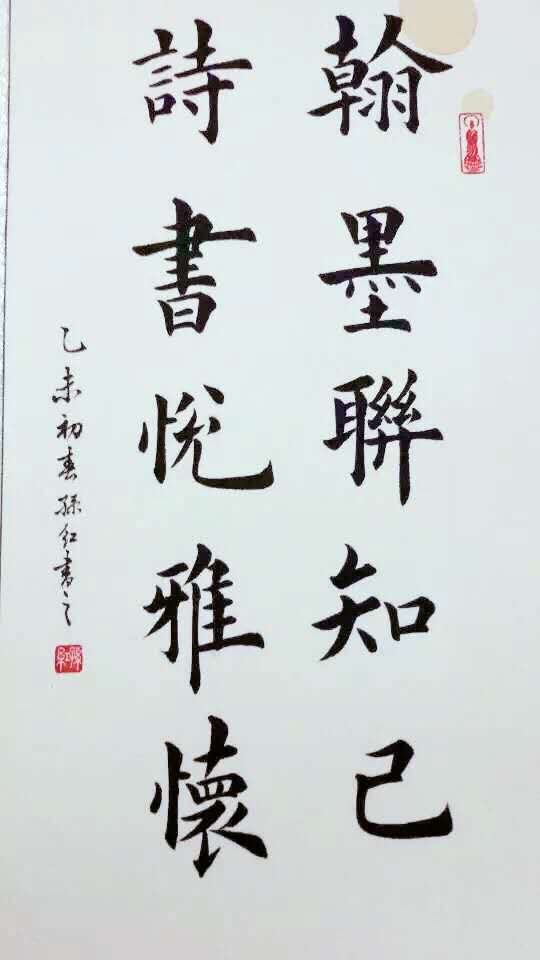 翰墨聯知己
詩書悅雅懷
乙未初春孫紅書之